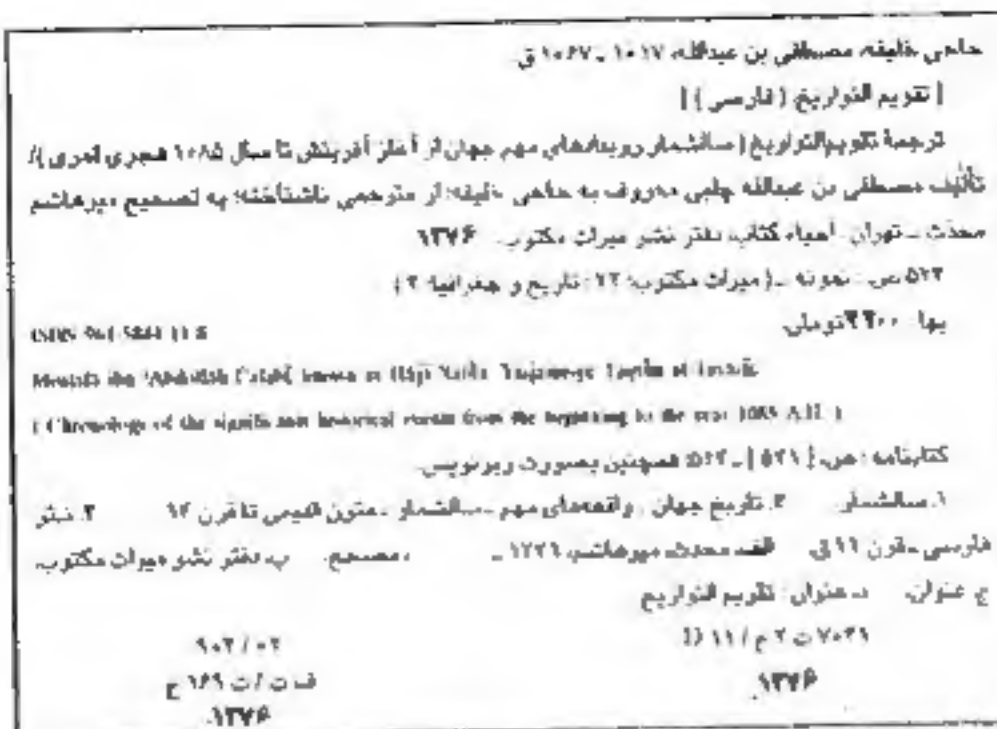 حاجی خلیفه، مصطفی بن عبدالله، ۱۰۱۷ ـ ۱۰۶۷ ق.
[ تقویم التواریخ ( فارسی ) ]
ترجمة تقویم‌التواریخ ( سالشمار رویدادهای مهم جهان از آغاز آفرینش تا سال ۱۰۸۵ هجری قمری )/
تألیف مصطفی بن عبدالله چلبی معروف به حاجی خلیفه؛ از مترجمی ناشناخته؛ به تصحیح میرهاشم
محدث ـ تهران: احیاء کتاب، دفتر نشر میراث مکتوب، ۱۳۷۶
۵۲۳ ص. نمونه ـ ( میراث مکتوب؛ ۲۳ : تاریخ و جغرافیا؛ ۳ )
بها: ۲۳۰۰ تومان.
ISBN 964-5844-11-8
Mustafa ibn 'Abdullāh known as Hājī
( Chronology of the significant historical events from the beginning to the year 1085 A.H. )
کتابنامه : ص. [ ۵۲۱ ] ـ ۵۲۳؛ همچنین بصورت زیرنویس.
۱. سالشمار. ۲. تاریخ جهان ـ واقعه‌های مهم ـ سالشمار ـ متون قدیمی تا قرن ۱۴ ۳. نثر
فارسی ـ قرن ۱۱ ق. الف. محدث، میرهاشم، ۱۳۳۱ ـ ، مصحح. ب. دفتر نشر میراث مکتوب.
ج. عنوان. د. عنوان: تقویم التواریخ
۷۰۳۹ ت ۲ ح / ۱۱ D
۹۰۲ / ۰۲
ف ت / ت ۱۶۹ ح
۱۳۷۶
۱۳۷۶